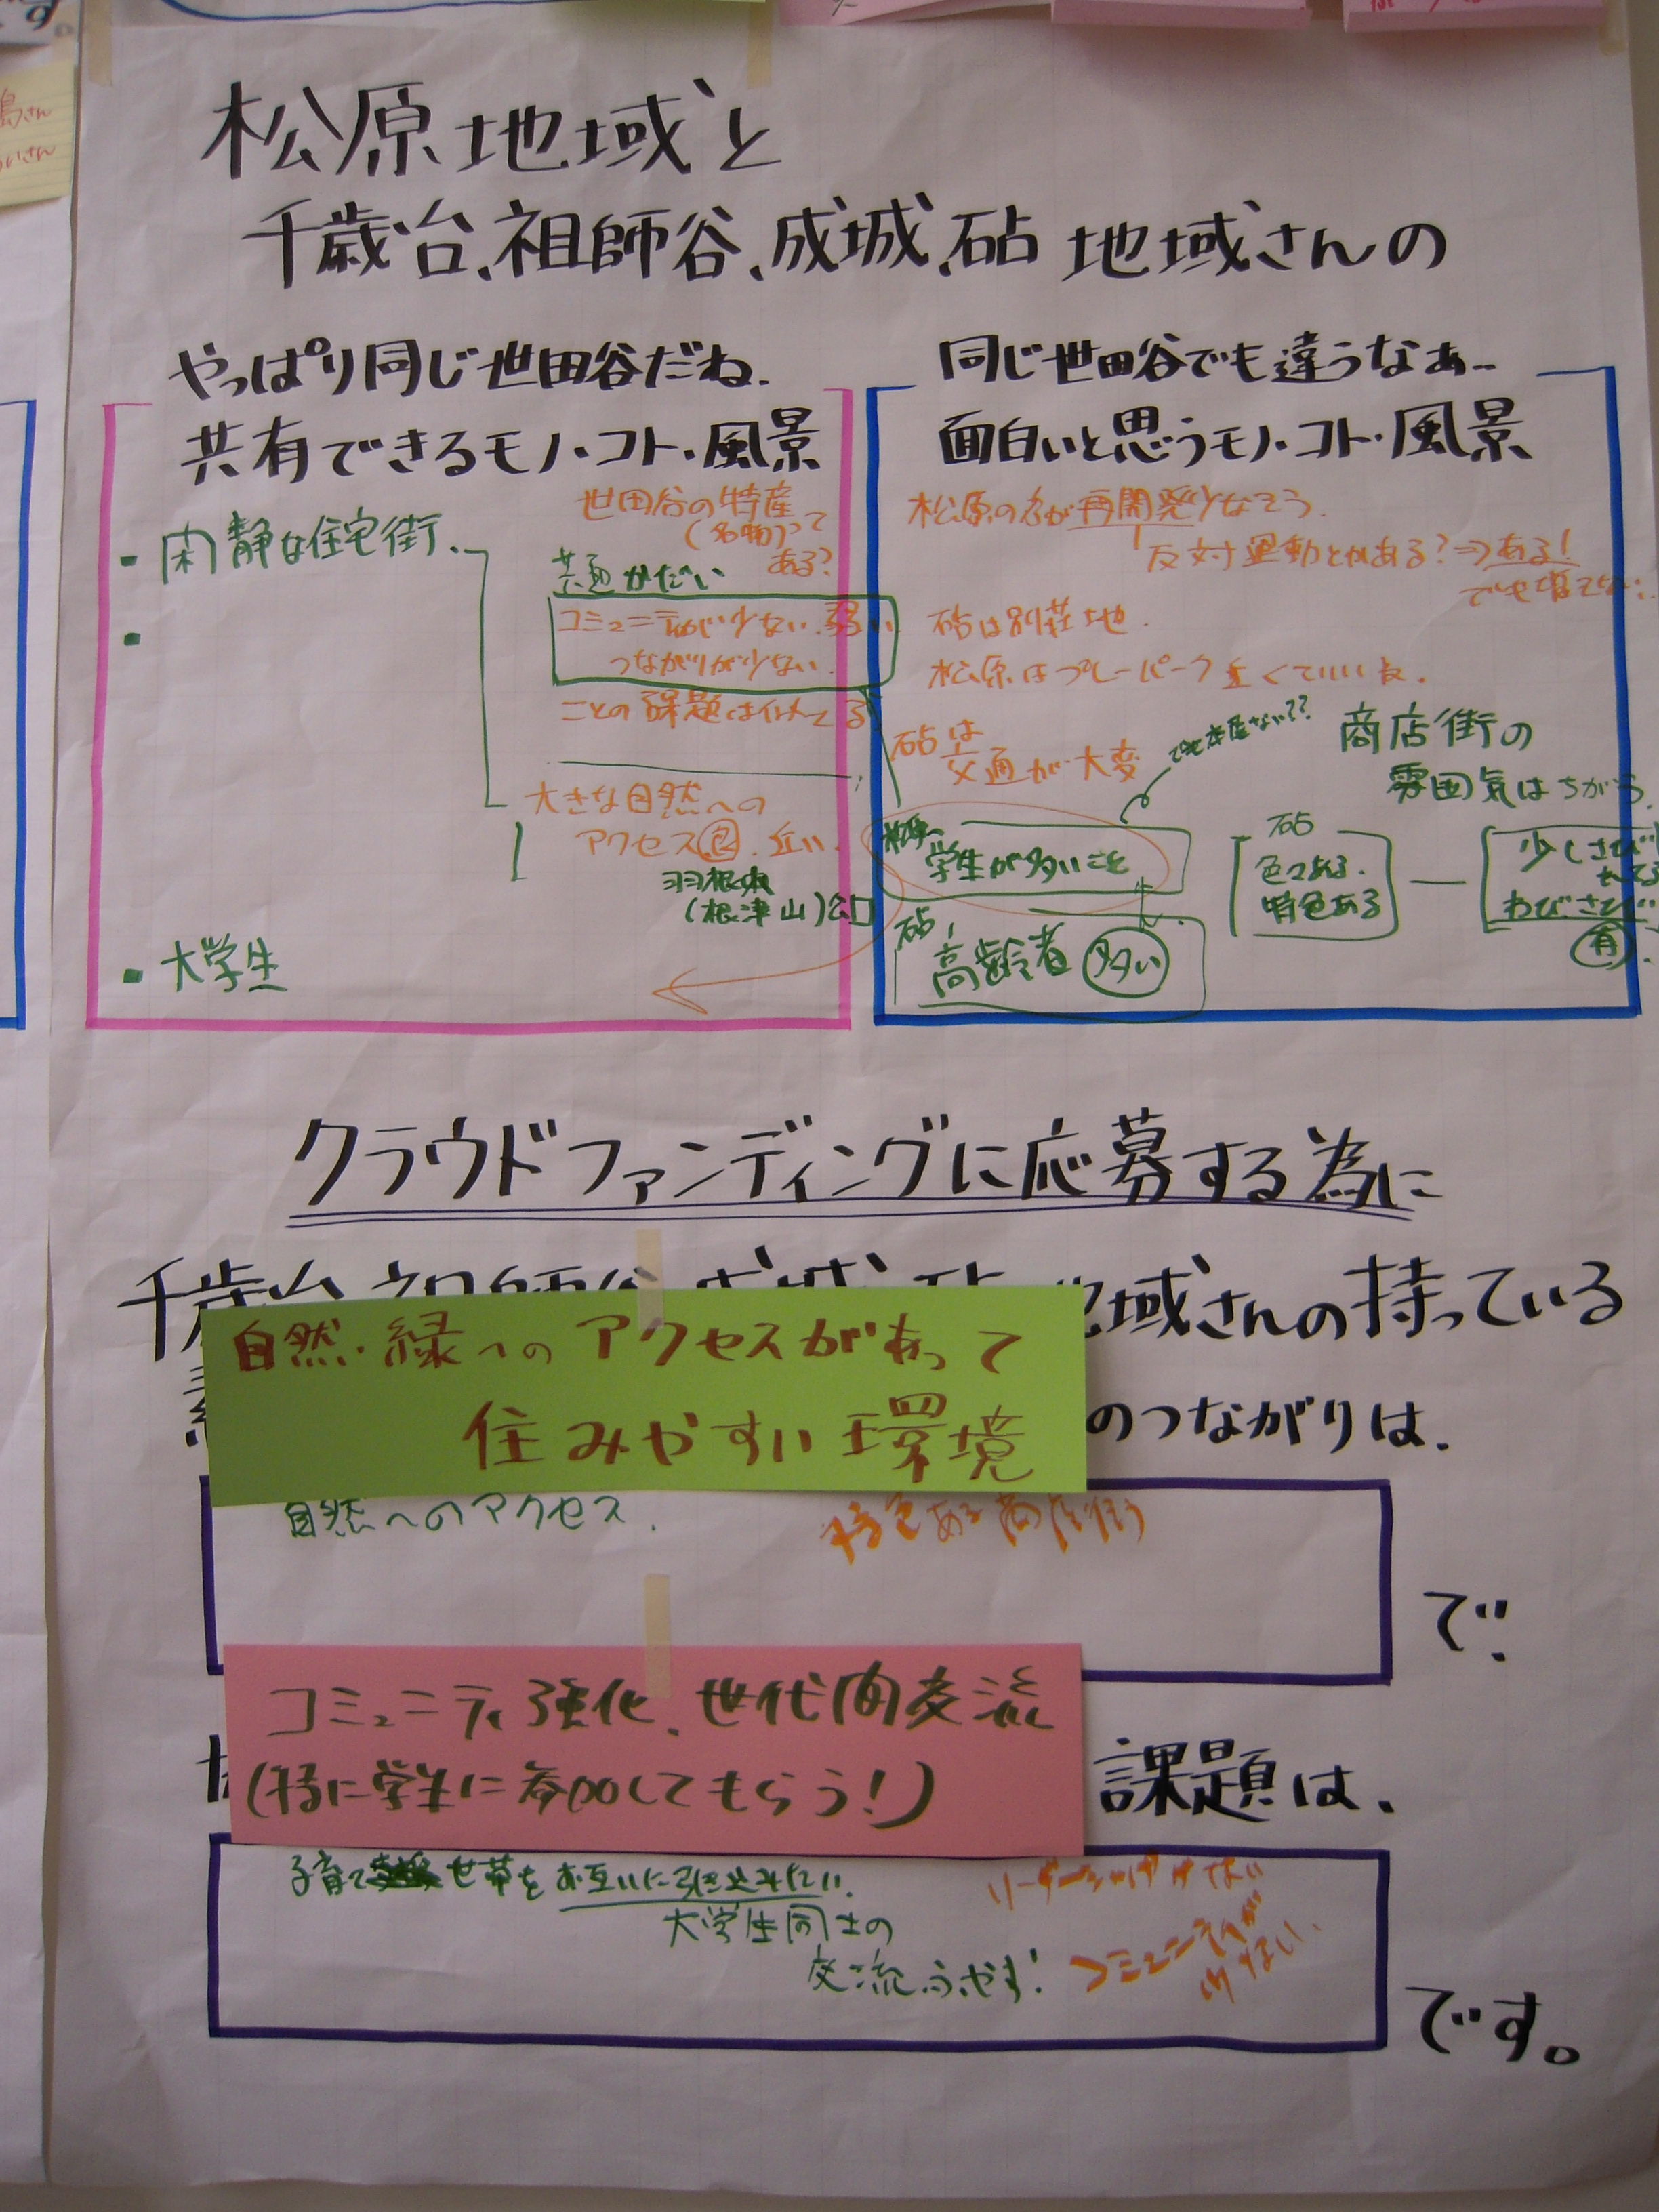 松原地域と
千歳台、祖師谷、成城、砧 地域さんの
やっぱり同じ世田谷だね。
共有できるモノ・コト・風景
世田谷の特産
(名物)って
ある?
閑静な住宅街、
共通かだい
コミュニティが少ない、弱い
つながりが少ない。
ことの課題は似てる
大きな自然への
アクセス 近い
羽根木
(根津山)公
大学生
同じ世田谷でも違うなぁ…
面白いと思うモノ・コト・風景
松原の名が再開発少なそう。
反対運動とかある?⇒ある!
砧は別荘地。
松原はプレーパーク近くていいな。
砧は
交通が大変
でも本屋ない??
商店街の
雰囲気はちがう。
松原へ
学生が多いこと
砧
色々ある。
特色ある
少しさび
わびさび
有
砧、
高齢者 多い
クラウドファンディングに応募する為に
千歳台、祖師谷、成城、砧 地域さんの持っている
自然・緑へのアクセスがあって
住みやすい環境
のつながりは、
自然へのアクセス。
特色ある商店街
で、
コミュニティ強化、世代間交流
(特に学生に参加してもらう!)
課題は、
子育て 世帯をお互いに引き込みたい。
大学生同士の
交流ふやす!
リーダーシップがない
コミュニティが
ない、
です。